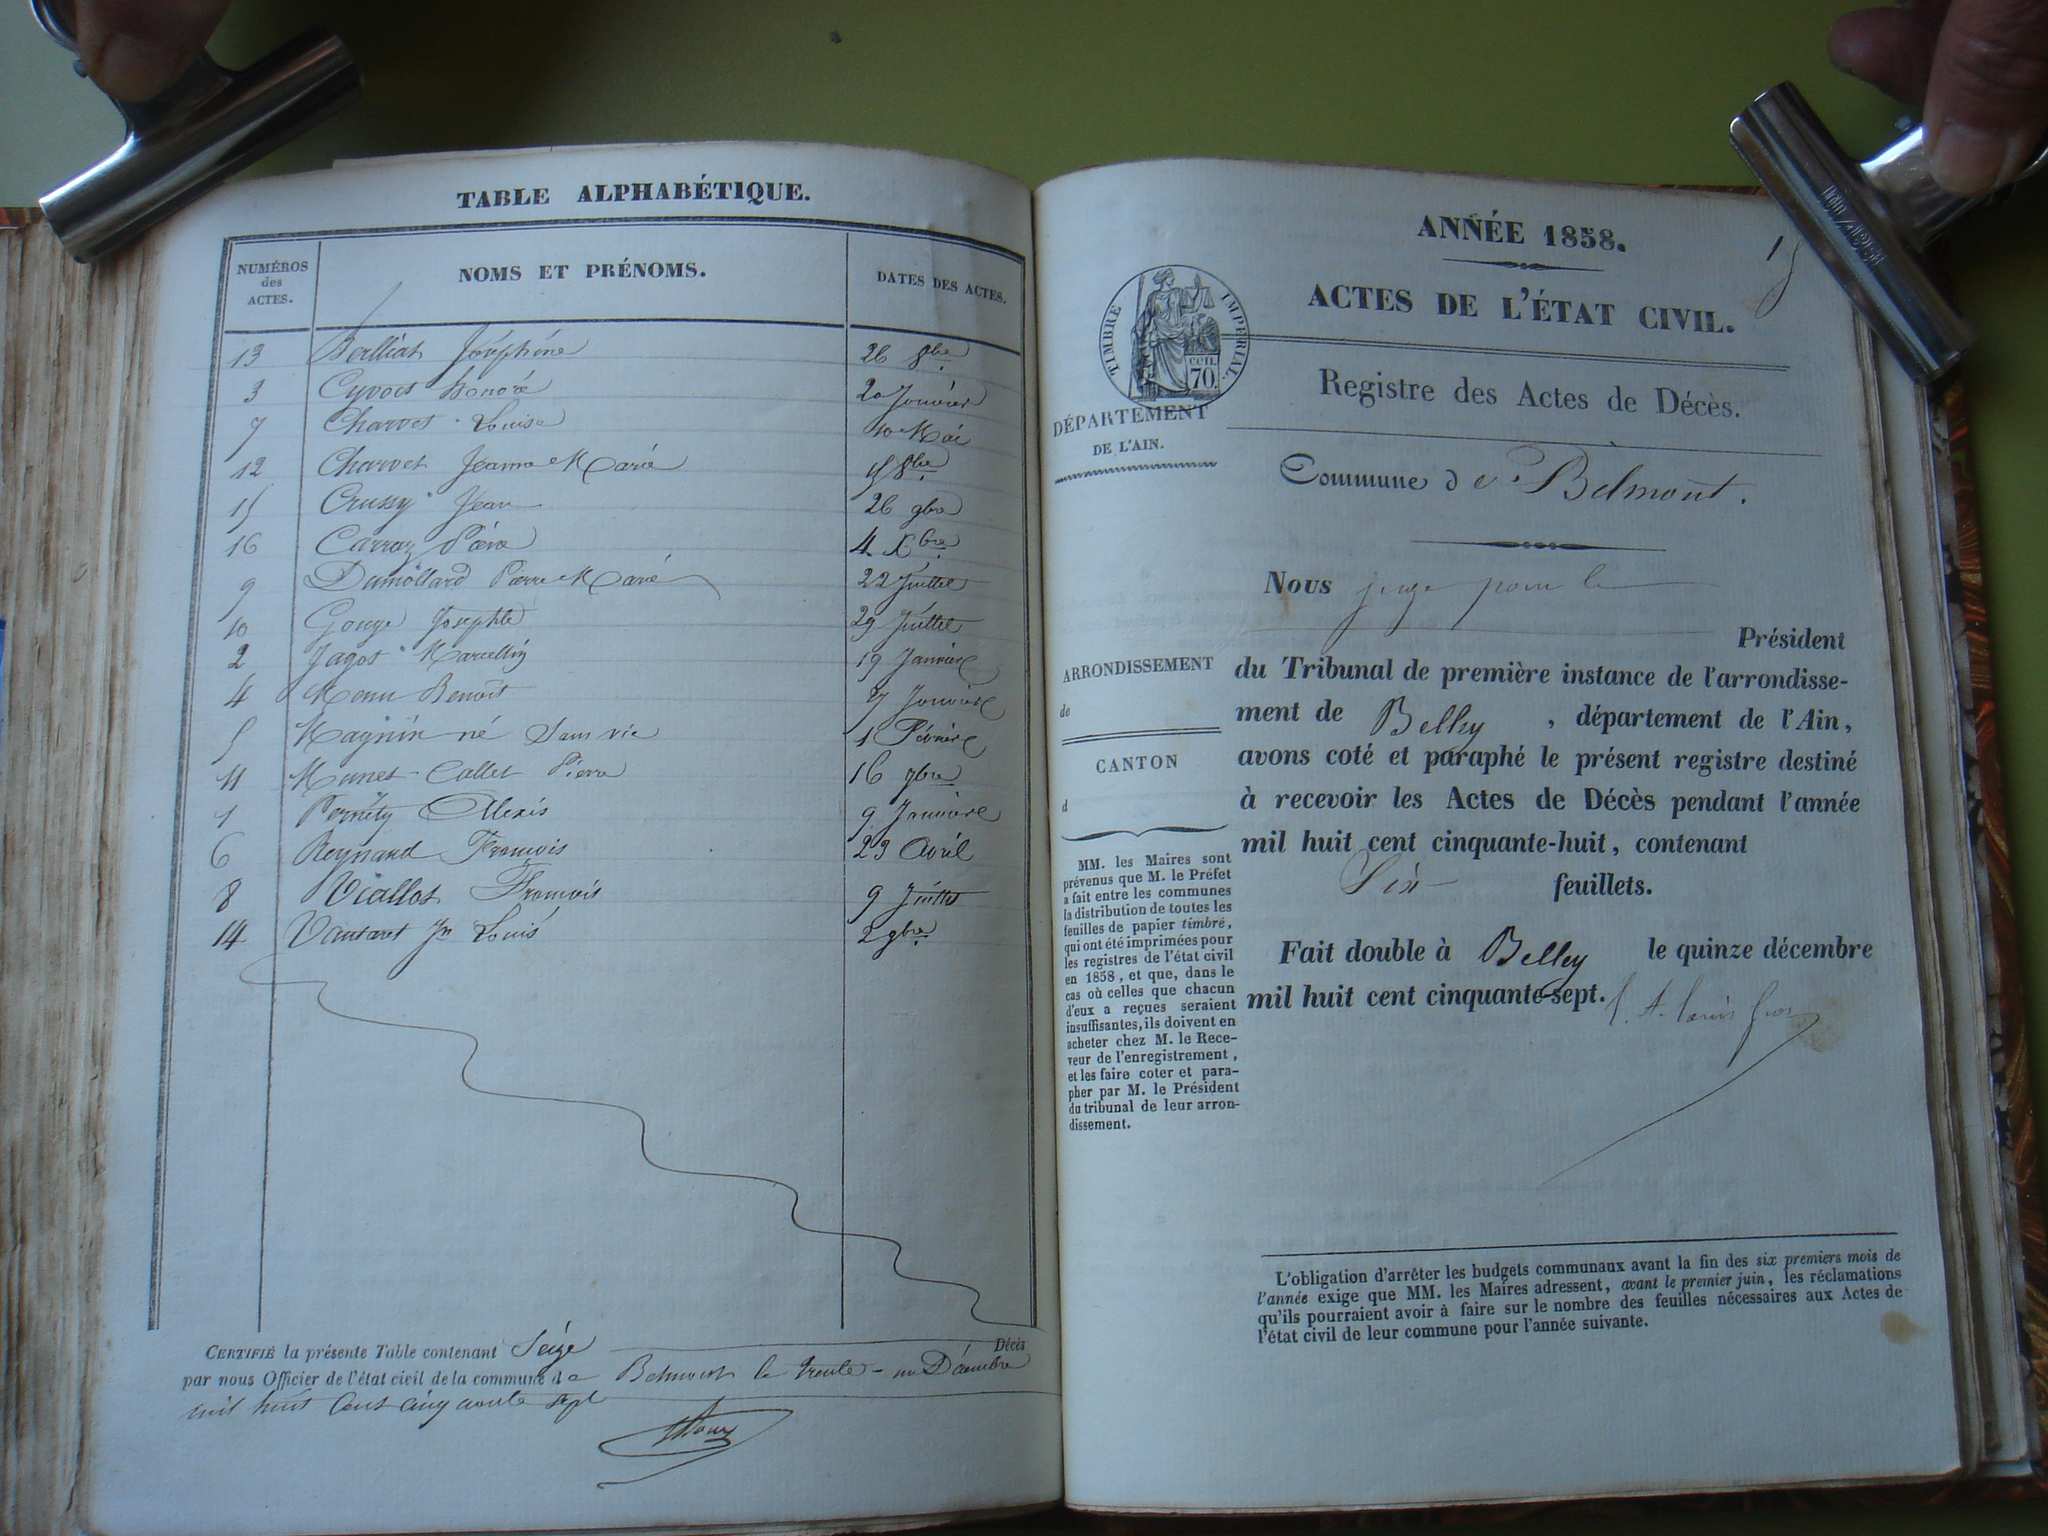 TABLE ALPHABÉTIQUE.
NUMÉROS des ACTES.
NOMS ET PRÉNOMS.
DATES DES ACTES.
13 Berlliat Joséphine 26 8bre
3 Cyvoct honoré 20 Janvier
7 Charvet Louise 10 Mai
12 Charvet Jeanne Marie 15 8bre
15 Crussy Jean 26 9bre
16 Carraz Pierre 4 Xbre
9 Dumollard Pierre Marie 22 Juillet
10 Gouge Josephte 29 Juillet
2 Jagot Marcellin 19 Janvier
4 Benoit Janvier
5 Magnin né Sans vie 1 Février
11 Callet Pierre 16 7bre
1 Pernéty Alexis 9 Janvier
6 Reynaud François 23 Avril
8 Viallet François 9 Juillet
14 Jn Louis 2 9bre
CERTIFIÉ la présente Table contenant Seize Décès
par nous Officier de l'état civil de la commune de Belmont le trente-un Décembre
mil huit Cent Cinquante sept
ANNÉE 1858.
ACTES DE L'ÉTAT CIVIL.
TIMBRE IMPÉRIAL.
cen. 70.
Registre des Actes de Décès.
DÉPARTEMENT
DE L'AIN.
Commune de Belmont.
Nous juge pour le
Président
ARRONDISSEMENT
de
CANTON
d
du Tribunal de première instance de l'arrondisse-
ment de Belley, département de l'Ain,
avons coté et paraphé le présent registre destiné
à recevoir les Actes de Décès pendant l'année
mil huit cent cinquante-huit, contenant
Six feuillets.
Fait double à Belley le quinze décembre
mil huit cent cinquante-sept.
MM. les Maires sont
prévenus que M. le Préfet
a fait entre les communes
la distribution de toutes les
feuilles de papier timbré,
qui ont été imprimées pour
les registres de l'état civil
en 1858, et que, dans le
cas où celles que chacun
d'eux a reçues seraient
insuffisantes, ils doivent en
acheter chez M. le Rece-
veur de l'enregistrement,
et les faire coter et para-
pher par M. le Président
du tribunal de leur arron-
dissement.
L'obligation d'arrêter les budgets communaux avant la fin des six premiers mois de
l'année exige que MM. les Maires adressent, avant le premier juin, les réclamations
qu'ils pourraient avoir à faire sur le nombre des feuilles nécessaires aux Actes de
l'état civil de leur commune pour l'année suivante.